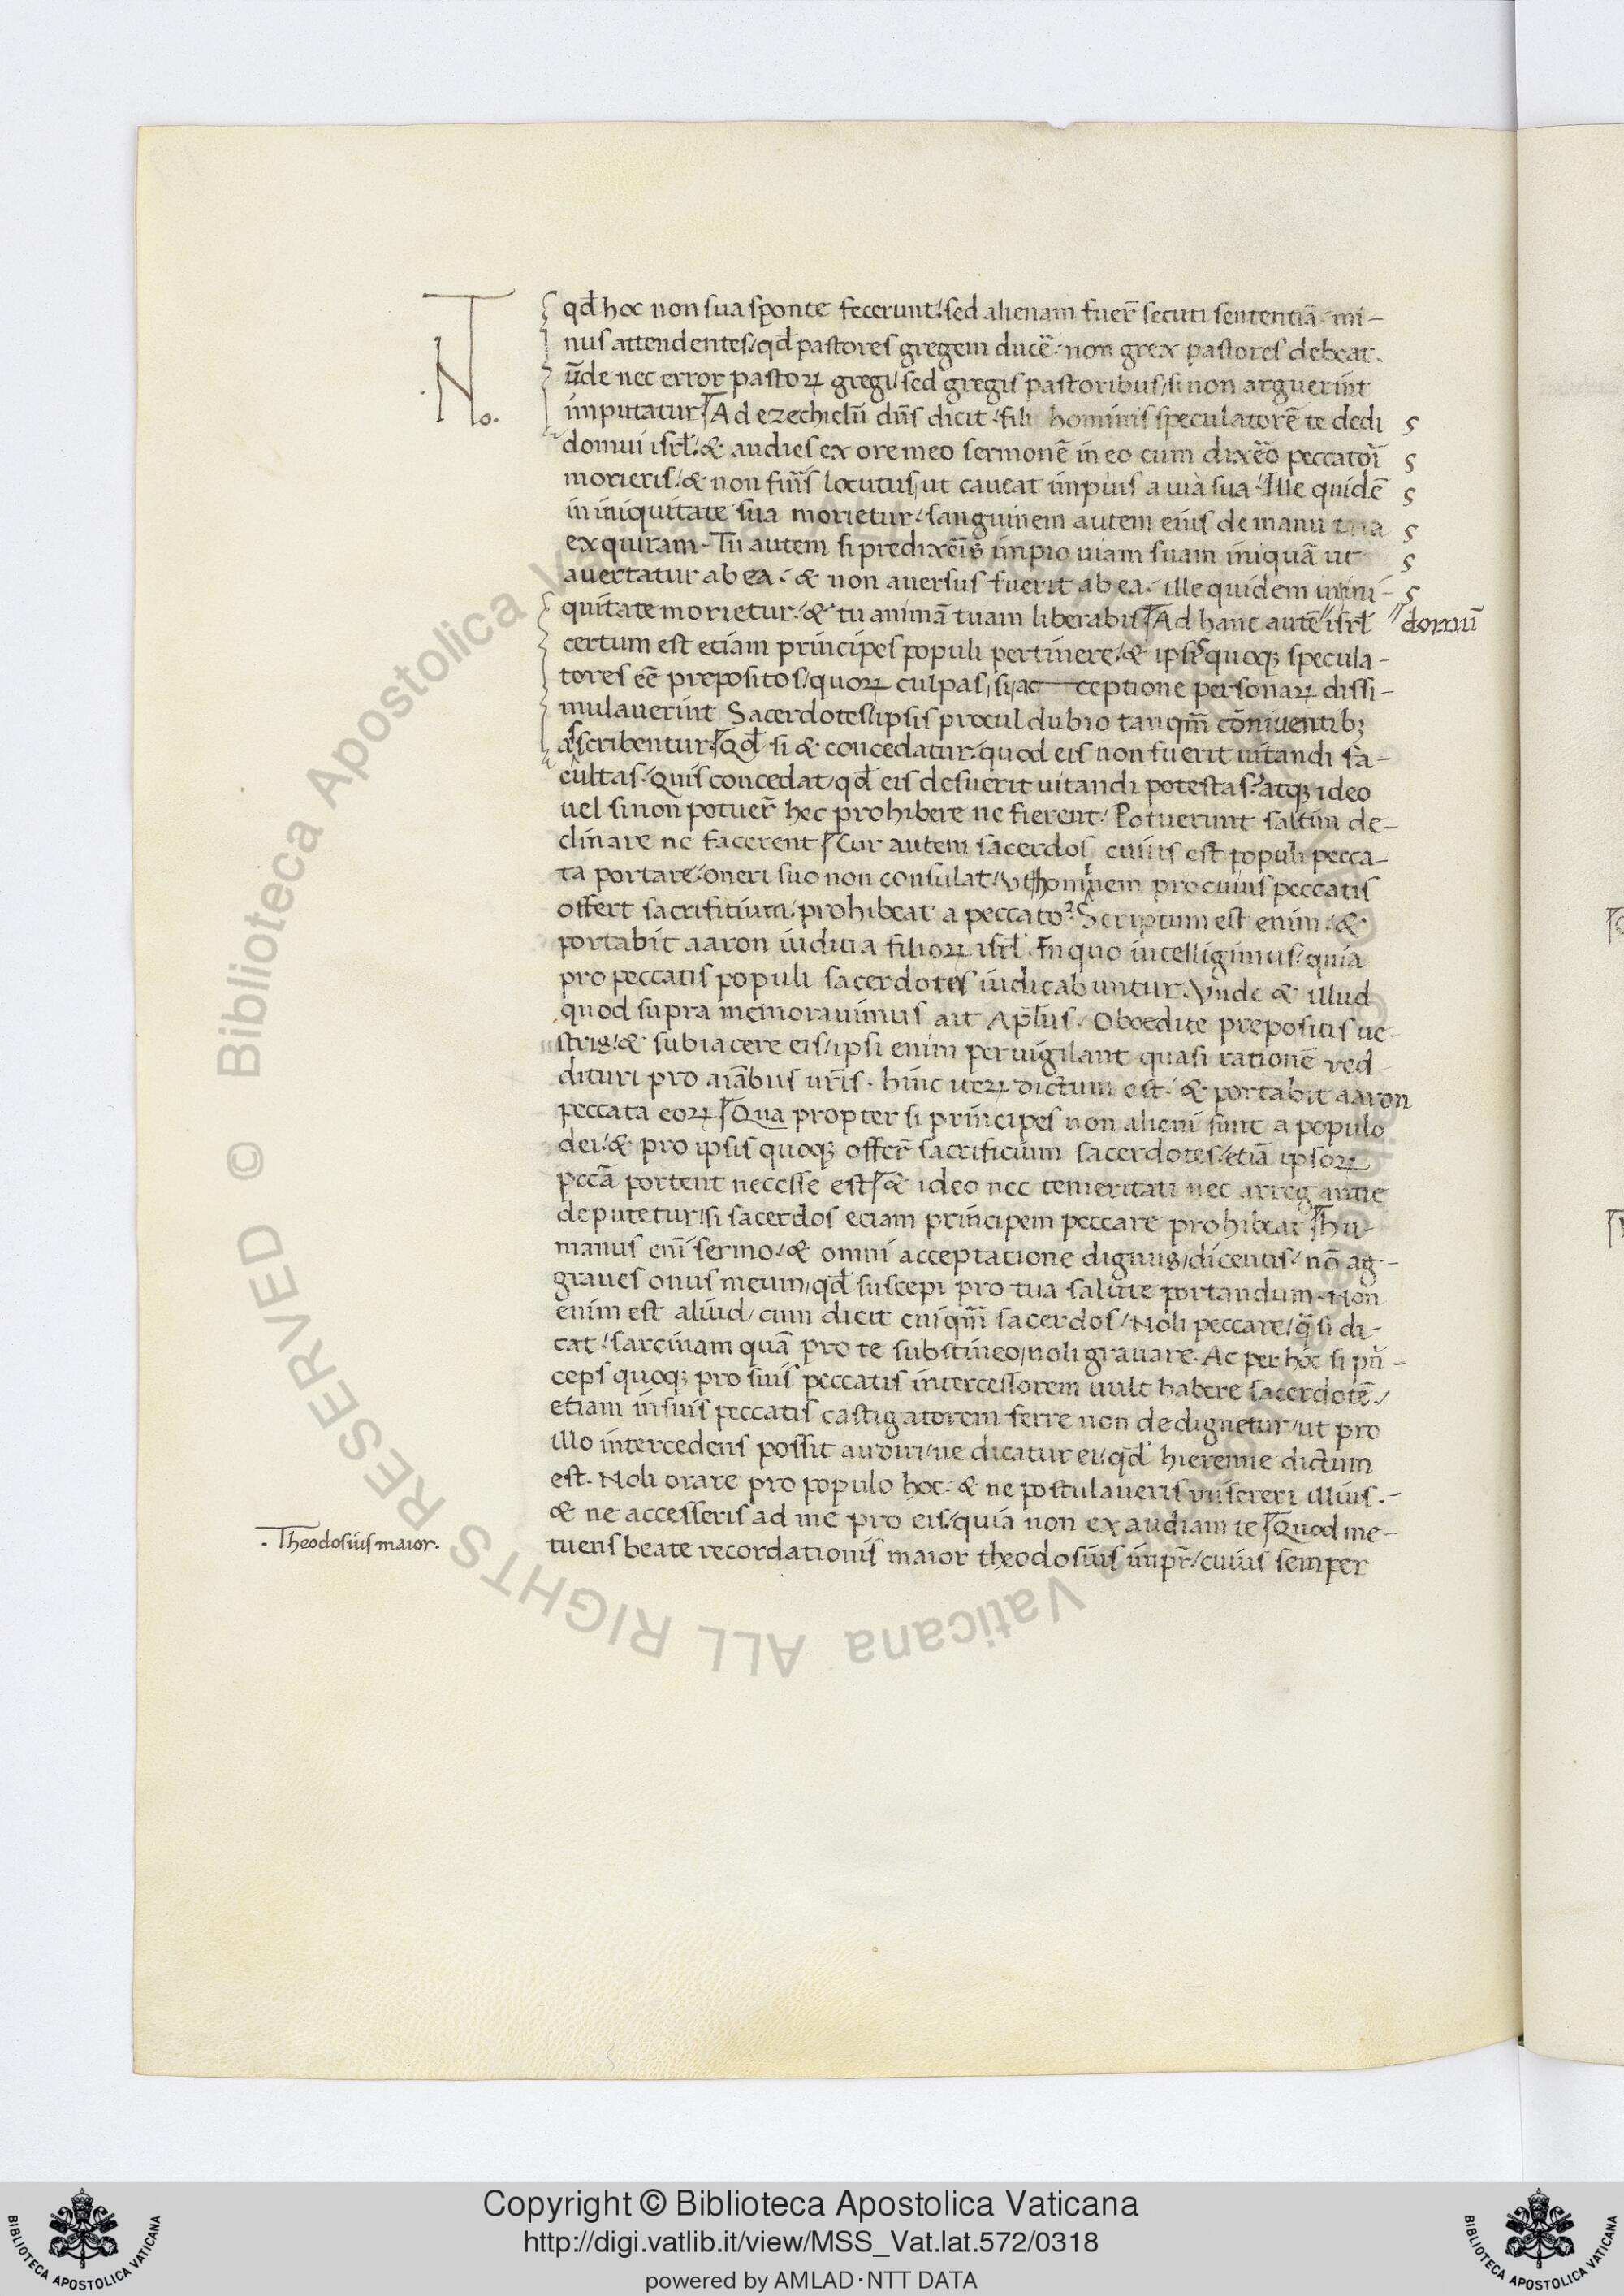 qd̄ hoc non sua sponte fecerunt: sed alienam fuer̄ secuti sententiā. mi-
nus attendentes/ qd̄ pastores gregem ducē. non grex pastores debeat.
No.
ūde nec error pastoꝝ gregi/ sed gregis pastoribus/ si non arguerint
imputatur. Ad ezechielū dn̄s dicit. fili hominis speculatorē te dedi
domui isrl̄: & audies ex ore meo sermonē in eo cum dixero peccatori
morieris: & non fueris locutus, ut caveat impius a uia sua. Ille quidē
in iniquitate sua morietur. sanguinem autem eius de manu tua
exquiram. Tu autem si predixeris impio uiam suam iniquā ut
avertatur ab ea. & non aversus fuerit ab ea. ille quidem in ini-
quitate morietur. & tu animā tuam liberabis. Ad hanc autē" isrl̄ " domū
certum est etiam principes populi pertinere/ & ipsis quoqꝫ specula-
tores ēē prepositos/ quoꝝ culpas, si, ac ceptione personaꝝ dissi-
mulaverint Sacerdotes/ ipsis procul dubio tanqm̄ cōniventibꝫ
ascribentur. Qd̄ si & concedatur. quod eis non fuerit uitandi fa-
cultas. quis concedat/ qd̄ eis defuerit uitandi potestas? atqꝫ ideo
uel si non potuer̄ hec prohibere ne fierent. Potuerunt saltim de-
clinare ne facerent. Cur autem sacerdos, cuius est populi pecca-
ta portare. oneri suo non consulat. ut hominem pro cuius peccatis
offert sacrifitium. prohibeat a peccato? Scriptum est enim. &
portabit aaron iuditia filioꝝ isrl̄. In quo intelligimus. quia
pro peccatis populi sacerdotes iudicabuntur. Vnde & illud
quod supra memoravimus ait Apl̄us. Oboedite prepositis ue-
stris: & subiacere eis/ ipsi enim pervigilant quasi rationē red
dituri pro aīabus ur̄is. hinc iteꝝ dictum est. & portabit aaron
peccata eoꝝ. Qua propter si principes non alieni sunt a populo
dei. & pro ipsis quoqꝫ offer̄ sacrificium sacerdotes/ etiā ipsoꝝ
peccā portent necesse est. & ideo nec temeritati nec arregantie
deputetur/ si sacerdos etiam principem peccare prohibeat. hu-
manus enī sermo/ & omni acceptatione dignus/ dicentis/ nō ag-
graves onus meum/ qd̄ suscepi pro tua salute portandum. Non
enim est aliud/ cum dicit cuiqm̄ sacerdos/ Noli peccare/ q̄ si di-
cat. sarcinam quā pro te substineo/ noli gravare. Ac per hoc si pn̄-
ceps quoqꝫ pro suis peccatis intercessorem uult habere sacerdotē./
etiam in suis peccatis castigatorem ferre non dedignetur/ ut pro
illo intercedens possit audiri/ ne dicatur ei/ qd̄ hieremie dictum
est. Noli orare pro populo hoc. & ne postulaveris misereri illius.-
& ne accesseris ad me pro eis/ quia non exaudiam te. Quod me-
. Theodosius maior.
tuens beate recordationis maior theodosius impr̄/ cuius semper
Copyright © Biblioteca Apostolica Vaticana
http://digi.vatlib.it/view/MSS_Vat.lat.572/0318
powered by AMLAD·NTT DATA
BIBLIOTECA APOSTOLICA VATICANA
BIBLIOTECA APOSTOLICA VATICANA
© Biblioteca Apostolica Vaticana ALL RIGHTS RESERVED